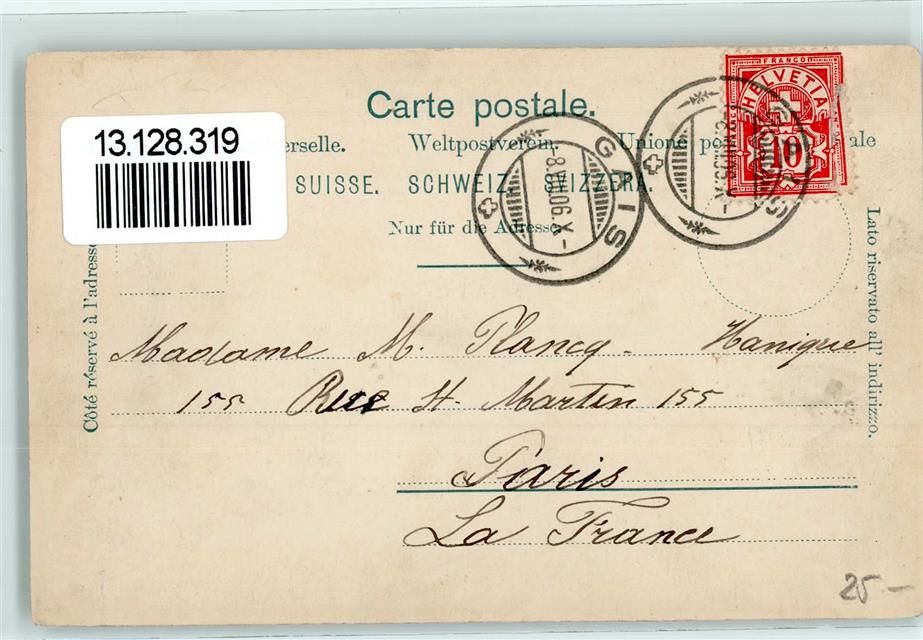 Carte postale.
FRANCO
HELVETIA
10
13.128.319
erselle. Weltpostverein. Unione po ale
SUISSE. SCHWEIZ. SVIZZERA.
Nur für die Adresse
GAIS
8.VIII.06.X-
GAIS
8.VIII.06.X-
Côté réservé à l'adresse
Lato riservato all' indirizzo.
Madame M. Plancq - Hanique
155 Rue St. Martin 155
Paris
La France
25-